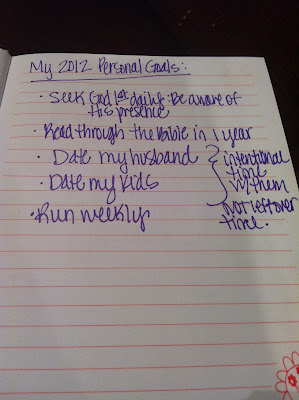 My 2012 Personal Goals:
• Seek God 1st daily: Be aware of
His presence
• Read through the Bible in 1 year
• Date my husband
• Date my kids
intentional
time
w/ them
not leftover
time.
• Run weekly